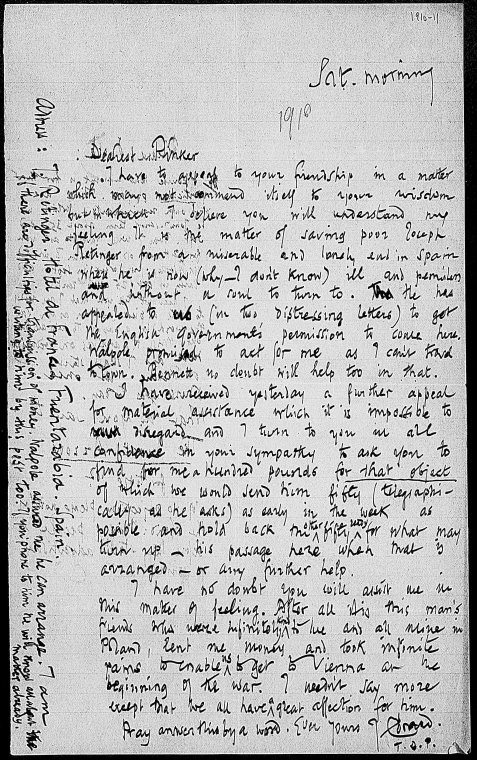 1916-11
Sat. morning
1918
Dearest Pinker
I have to appeal to your friendship in a matter
which may not commend itself to your wisdom
but I believe you will understand my
feeling. It is the matter of saving poor Joseph
Retinger from a miserable and lonely end in Spain
where he is now (why I don't know) ill and penniless
and without a soul to turn to. He has
appealed to us (in two distressing letters) to get
the English Government's permission to come here.
Walpole promised to act for me as I can't travel
to town. Bennett no doubt will help too in that.
I have received yesterday a further appeal
for material assistance which it is impossible to
disregard and I turn to you in all
confidence in your sympathy to ask you to
find for me a hundred pounds for that object
of which we would send him fifty (telegraphi-
cally as he asks) as early in the week as
possible and hold back the other fifty for what may
turn up — his passage here when that is
arranged — or any further help.
I have no doubt you will assist me in
this matter of feeling. After all it is this man's
friends who were infinitely to me and all mine in
Poland, lent me money and took infinite
pains to enable us to get to Vienna at the
beginning of the war. I needn't say more
except that we all have great affection for him.
Pray answer this by a word. Ever yours J Conrad.
T. O. P.
Adress:
J. Retinger Hotel de France Fuentarabia. Spain.
If there are difficulties for transmission of money Walpole assured me he can arrange. I am
writing to him by this post too. If you phone to him he will know all about the
matter already.